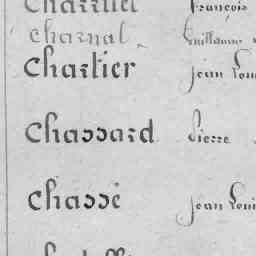 Charruel François
Charnal Guillaume
Chartier Jean Loui
Chassard Pierre
Chassé Jean Loui